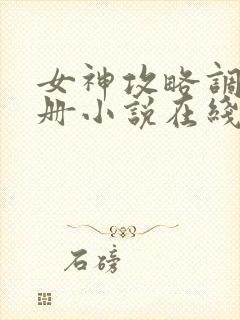 女神攻略調
册小説在綫
石磅